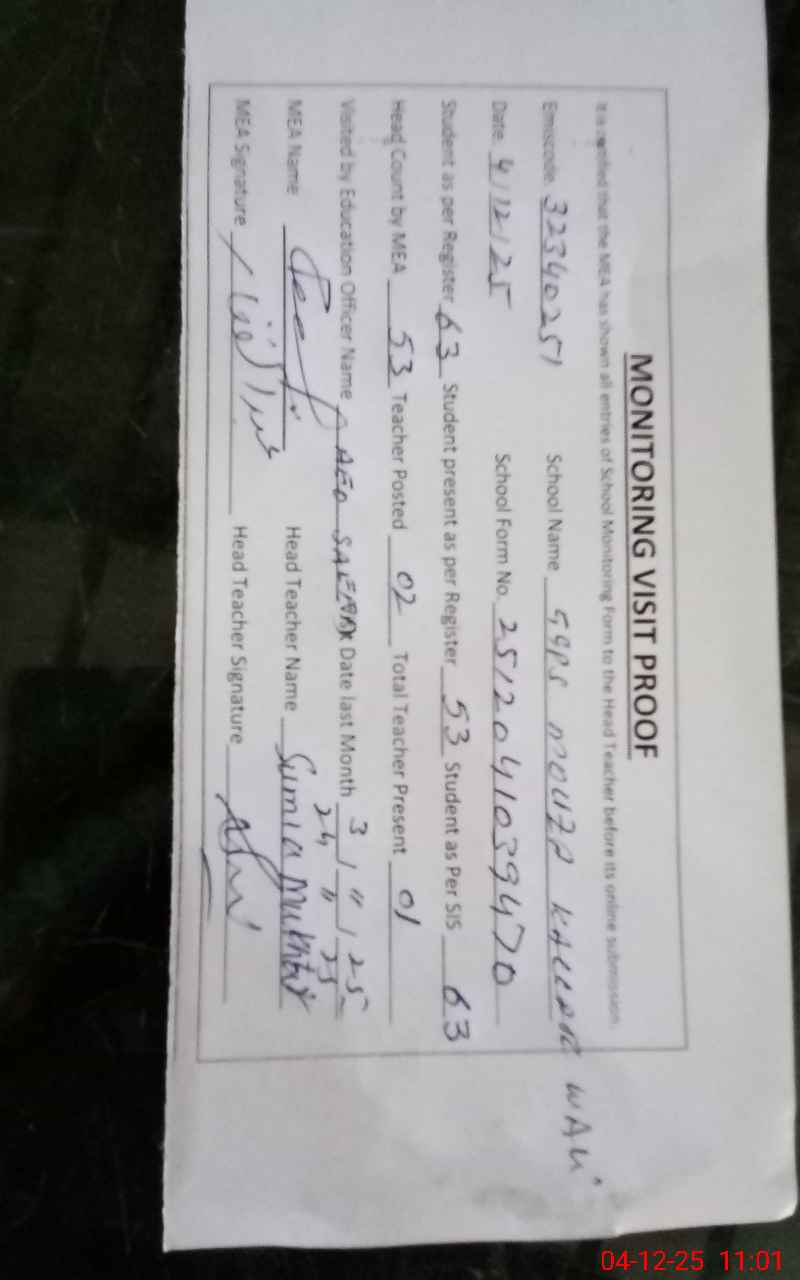 MONITORING VISIT PROOF
It is certified that the MEA has shown all entries of School Monitoring Form to the Head Teacher before its online submission.
Emiscode: 32340251 School Name GGPS MOUZA KALLAR WALI
Date: 4/12/25 School Form No. 2512041039470
Student as per Register 63 Student present as per Register 53 Student as Per SIS 63
Head Count by MEA 53 Teacher Posted 02 Total Teacher Present 01
Visited by Education Officer Name AEO Date last Month 3 / 11 / 25
24 11 25
MEA Name Head Teacher Name Sumia Mukhtar
MEA Signature Head Teacher Signature
04-12-25 11:01